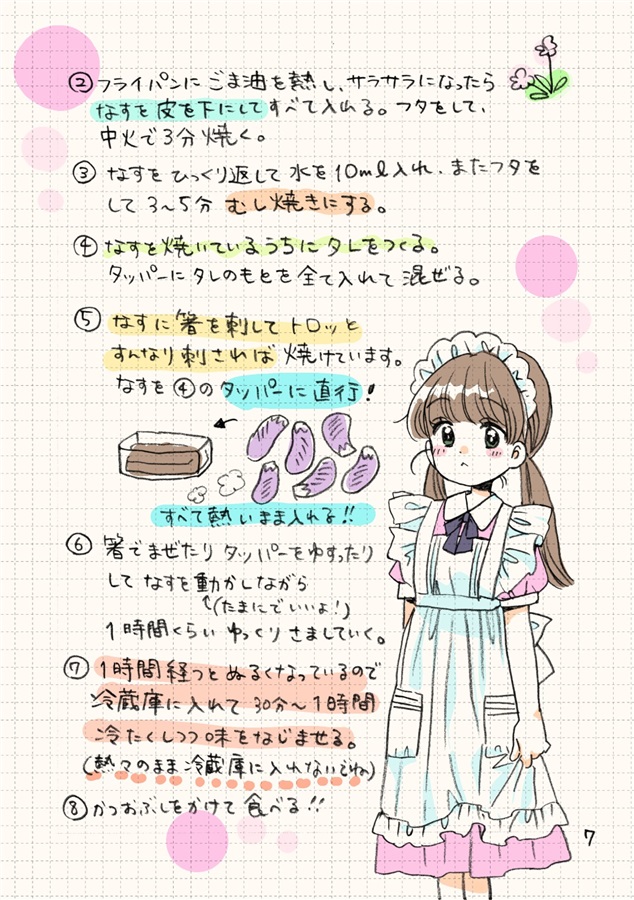 ② フライパンに ごま油を熱し、サラサラになったら
なすを 皮を下にして すべて入れる。フタをして、
中火で3分焼く。
③ なすを ひっくり返して 水を 10ml入れ、またフタを
して 3〜5分 むし焼きにする。
④ なすを焼いているうちに タレをつくる。
タッパーに タレのもとを 全て入れて 混ぜる。
⑤ なすに 箸を刺して トロッと
すんなり刺されば 焼けています。
なすを ④の タッパーに 直行!
すべて熱いまま入れる!!
⑥ 箸でまぜたり タッパーをゆすったり
して なすを動かしながら
(たまにでいいよ!)
1時間くらい ゆっくり さましていく。
⑦ 1時間経つと ぬるくなっているので
冷蔵庫に入れて 30分〜1時間
冷たくしつつ 味をなじませる。
(熱々のまま 冷蔵庫に入れないでね)
⑧ かつおぶしをかけて 食べる!!
7